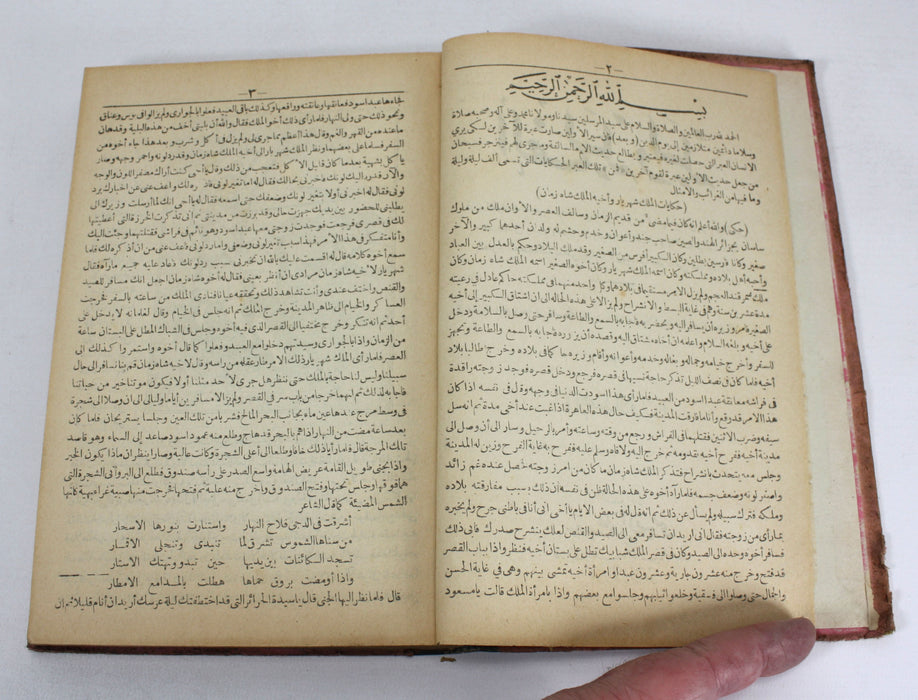 — ٢ —
بسم الله الرحمن الرحيم
الحمد لله رب العالمين والصلاة والسلام على سيد المرسلين سيدنا ومولانا محمد وعلى آله وصحبه صلاة
وسلاما دائمين متلازمين إلى يوم الدين (وبعد) فان سير الأولين صارت عبرة للآخرين لكي يرى
الانسان العبر التي حصلت لغيره فيعتبر ويطالع حديث الامم السالفة وما جرى لهم فينزجر فسبحان
من جعل حديث الاولين عبرة لقوم آخرين «فمن» تلك العبر الحكايات التي تسمى ألف ليلة وليلة
وما فيها من الغرائب والامثال
(حكايات الملك شهريار وأخيه الملك شاه زمان)
(حكى) والله أعلم انه كان فيما مضى من قديم الزمان وسالف العصر والأوان ملك من ملوك
ساسان بجزائر الهند والصين صاحب جند وأعوان وخدم وحشم له ولدان أحدهما كبير والآخر
صغير وكانا فارسين بطلين وكان الكبير أفرس من الصغير وقد ملك البلاد وحكم بالعدل بين العباد
وأحبه أهل بلاده ومملكته وكان اسمه الملك شهريار وكان أخوه الصغير اسمه الملك شاه زمان وكان
ملك سمرقند العجم ولم يزل الامر مستقيما في بلادهما وكل واحد منهما في مملكته حاكم عادل في رعيته
مدة عشرين سنة وهم في غاية البسط والانشراح ولم يزالا على هذه الحالة إلى ان اشتاق الكبير إلى أخيه
الصغير فأمر وزيره أن يسافر اليه ويحضر به فأجابه بالسمع والطاعة وسافر حتى وصل بالسلامة ودخل
على أخيه وبلغه السلام واعلمه ان أخاه مشتاق اليه وقصده أن يزوره فأجابه بالسمع والطاعة وتجهز
للسفر وأخرج خيامه وجماله وبغاله وخدمه وأعوانه وأقام وزيره حاكما في بلاده وخرج طالبا بلاد
أخيه فلما كان في نصف الليل تذكر حاجة نسيها في قصره فرجع ودخل قصره فوجد زوجته راقدة
في فراشه معانقة عبدا اسود من العبيد فلما رأى هذا اسودت الدنيا في وجهه وقال في نفسه اذا كان
هذا الامر قد وقع وأنا ما فارقت المدينة فكيف حال هذه العاهرة اذا غبت عند أخي مدة ثم انه سل
سيفه وضرب الاثنين فقتلهما في الفراش ورجع من وقته وساعته وأمر بالرحيل وسار إلى أن وصل إلى
مدينة أخيه ففرح أخيه بقدومه ثم خرج اليه ولاقاه وسلم عليه ففرح به غاية الفرح وزين له المدينة
وجلس معه يتحدث بانشراح فتذكر الملك شاه زمان ما كان من امر زوجته فحصل عنده غم زائد
واصفر لونه وضعف جسمه فلما رآه أخوه على هذه الحالة ظن في نفسه ان ذلك بسبب مفارقته بلاده
وملكه فترك سبيله ولم يسأل عن ذلك ثم انه قال له في بعض الايام يا أخي انى أنا في باطنى جرح ولم يخبره
بما رأى من زوجته فقال انى أريد أن تسافر معى الى الصيد والقنص لعلك ينشرح صدرك فابى ذلك
فسافر أخوه وحده الى الصيد وكان في قصر الملك شبابيك تطل على بستان أخيه فنظر واذا بباب القصر
قد فتح وخرج منه عشرون جارية وعشرون عبدا وامرأة أخيه تمشى بينهم وهي في غاية الحسن
والجمال حتى وصلوا إلى فسقية وخلعوا ثيابهم وجلسوا مع بعضهم واذا بامرأة الملك قالت يا مسعود
— ٣ —
فجاءها عبد اسود فعانقها وعانقته وواقعها وكذلك باقي العبيد فعلوا بالجواري ولم يزالوا في بوس وعناق
ونحو ذلك حتى ولى النهار فلما رأى ذلك أخو الملك قال والله ان بليتى أخف من هذه البلية وقد هان
ما عنده من القهر والغم وقال هذا اعظم مما جرى لى ولم يزل في أكل وشرب وبعد هذا جاء أخوه من
السفر فسلما على بعضهما ونظر الملك شهريار الى أخيه الملك شاه زمان وقد رد لونه واحمر وجهه وصار
يأكل بشهية بعد ما كان قليل الاكل فتعجب من ذلك وقال يا أخى كنت أراك مصفر اللون والوجه
والآن قد رد اليك لونك فاخبرنى بحالك فقال له اما تغير لونى فاذكره لك واعف عنى عن اخبارك برد
لونى فقال له اخبرنى أولا بتغير لونك وضعفك حتى اسمعه فقال له يا أخى انك لما أرسلت وزيرك الى
يطلبنى للحضور بين يديك جهزت حالى وقد برزت من مدينتى ثم انى تذكرت الخرزة التي أعطيتها
لك في قصرى فرجعت فوجدت زوجتي معها عبد اسود وهو نائم في فراشي فقتلتهما وجئت اليك
وأنا متفكر في هذا الأمر فهذا سبب تغير لونى وضعفى واما رد لونى فاعف عنى من ان أذكره لك فلما
سمع أخوه كلامه قال له اقسمت عليك بالله ان تخبرنى بسبب رد لونك فاعاد عليه جميع ما رآه فقال
شهريار لاخيه شاه زمان مرادى ان أنظر بعينى فقال له أخوه شاه زمان اجعل انك مسافر للصيد
والقنص واختف عندى وأنت تشاهد ذلك وتحققه عيانا فنادى الملك من ساعته بالسفر فخرجت
العساكر والخيام الى ظاهر المدينة وخرج الملك ثم انه جلس في الخيام وقال لغلمانه لا يدخل على
أحد ثم انه تنكر وخرج مختفيا الى القصر الذى فيه أخوه وجلس في الشباك المطل على البستان ساعة
من الزمان واذا بالجوارى وسيدتهم دخلوا مع العبيد وفعلوا كما قال أخوه واستمروا كذلك الى
العصر فلما رأى الملك شهريار ذلك الامر طار عقله من رأسه وقال لاخيه شاه زمان قم بنا نسافر الى حال
سبيلنا وليس لنا حاجة بالملك حتى ننظر هل جرى لاحد مثلنا أو لا فيكون موتنا خير من حياتنا
فاجابه لذلك ثم انهما خرجا من باب سر في القصر ولم يزالا مسافرين أياما وليالى الى ان وصلا الى شجرة
في وسط مرج عندها عين ماء بجانب البحر المالح فشربا من تلك العين وجلسا يستريحان فلما كان
بعد ساعة مضت من النهار اذا هم بالبحر قد هاج وطلع منه عمود اسود صاعد الى السماء وهو قاصد
تلك المرجة قال فلما رأيا ذلك خافا وطلعا الى أعلى الشجرة وكانت عالية وصارا ينظران ماذا يكون الخبر
واذا بجنى طويل القامة عريض الهامة واسع الصدر على رأسه صندوق فطلع الى البر وأتى الشجرة التي
هما فوقها وجلس تحتها وفتح الصندوق واخرج منه علبة ثم فتحها فخرجت منها صبية غراء بهية كأنها
الشمس المضيئة كما قال الشاعر
أشرقت في الدجى فلاح النهار واستنارت بنورها الاسحار
من سناها الشموس تشرق لما تتبدى وتنجلى الاقمار
تسجد الكائنات بين يديها حين تبدو وتهتك الاستار
واذا أومضت بروق حماها هطلت بالمدامع الامطار
قال فلما نظر اليها الجنى قال يا سيدة الحرائر التي قد اختطفتك ليلة عرسك أريد ان أنام قليلا ثم ان